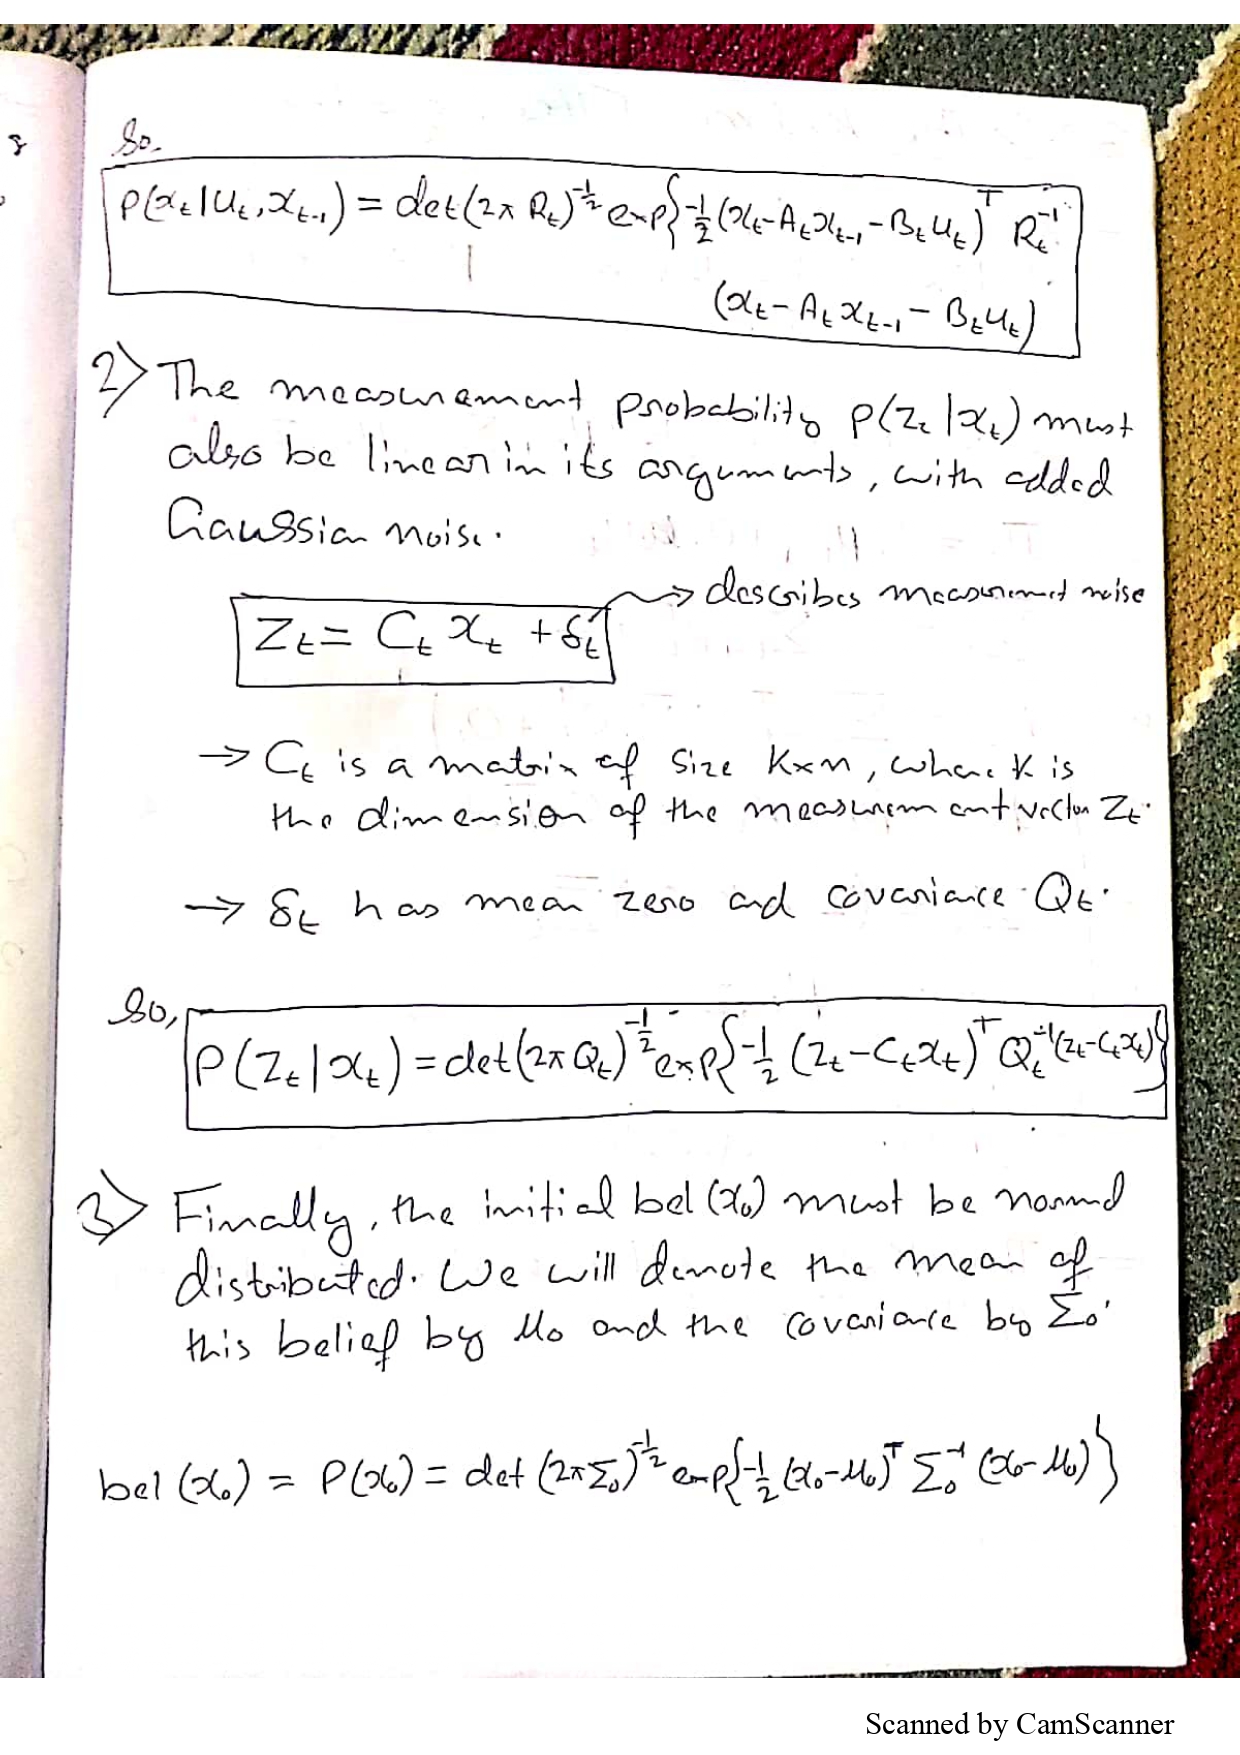 So,
P(x_t | u_t, x_{t-1}) = det(2π R_t)^{-1/2} exp{ -1/2 (x_t - A_t x_{t-1} - B_t u_t)^T R_t^{-1}
(x_t - A_t x_{t-1} - B_t u_t)
2) The measurement probability p(z_t | x_t) must
also be linear in its arguments, with added
Gaussian noise.
→ describes measurement noise
Z_t = C_t x_t + δ_t
→ C_t is a matrix of size K×n, where K is
the dimension of the measurement vector Z_t.
→ δ_t has mean zero and covariance Q_t.
So,
P(Z_t | x_t) = det(2π Q_t)^{-1/2} exp{ -1/2 (Z_t - C_t x_t)^T Q_t^{-1} (Z_t - C_t x_t) }
3) Finally, the initial bel(x_0) must be normal
distributed. We will denote the mean of
this belief by μ_0 and the covariance by Σ_0.
bel(x_0) = P(x_0) = det(2π Σ_0)^{-1/2} exp{ -1/2 (x_0 - μ_0)^T Σ_0^{-1} (x_0 - μ_0) }
Scanned by CamScanner